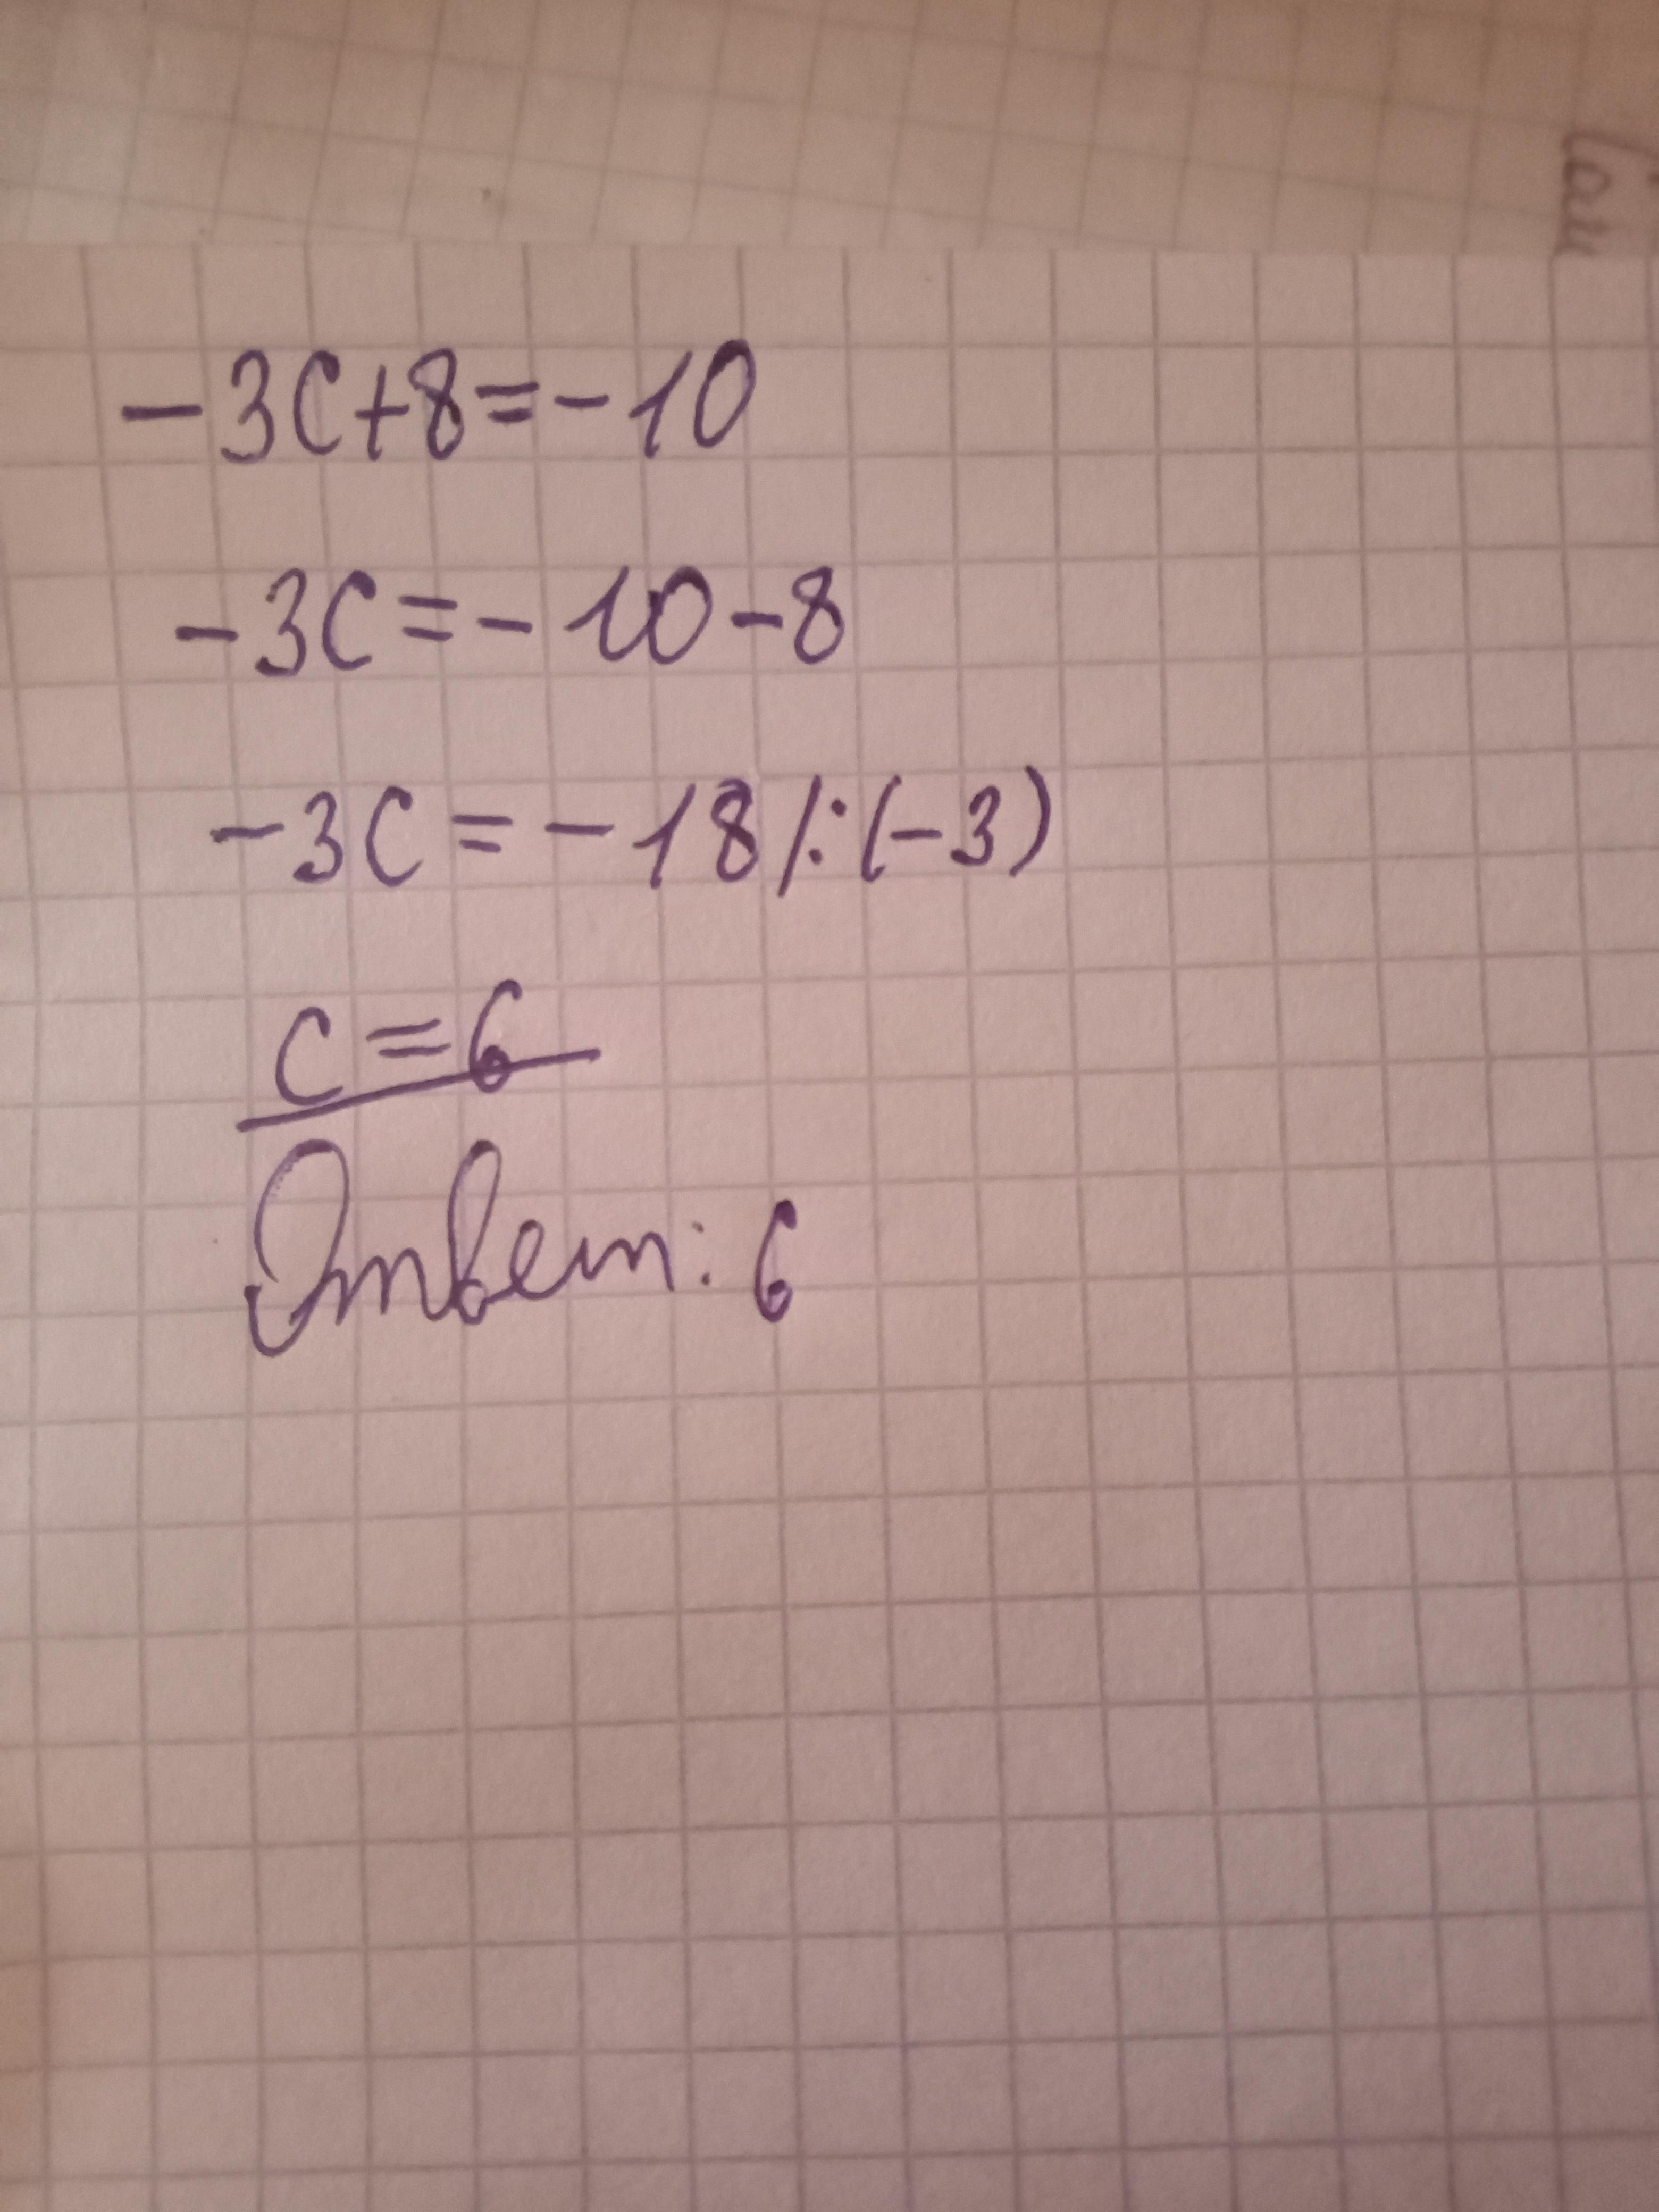 -3c+8=-10
-3c=-10-8
-3c=-18/:(-3)
c=6
Ответ: 6